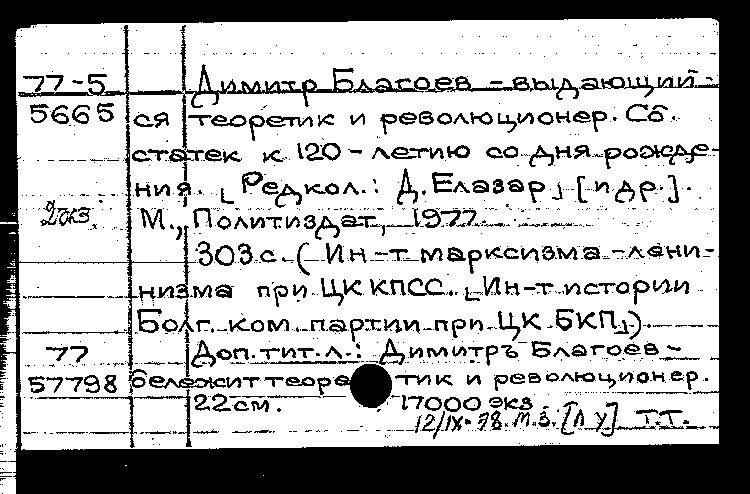 77-5 Димитр Благоев – выдающий-
5665 ся теоретик и революционер. Сб.
статек к 120-летию со дня рожде-
ния. [Редкол.: Д. Елазар] [и др.].
2 экз. М., Политиздат, 1977.
303 с. (Ин-т марксизма-лени-
низма при ЦК КПСС. [Ин-т истории
Болг. ком. партии при ЦК БКП]).
77 Доп. тит. л.: Димитръ Благоев –
57798 бележит теоретик и революционер.
22 см. 17000 экз.
12/IX-78. М.З. [Л У] Т.Т.